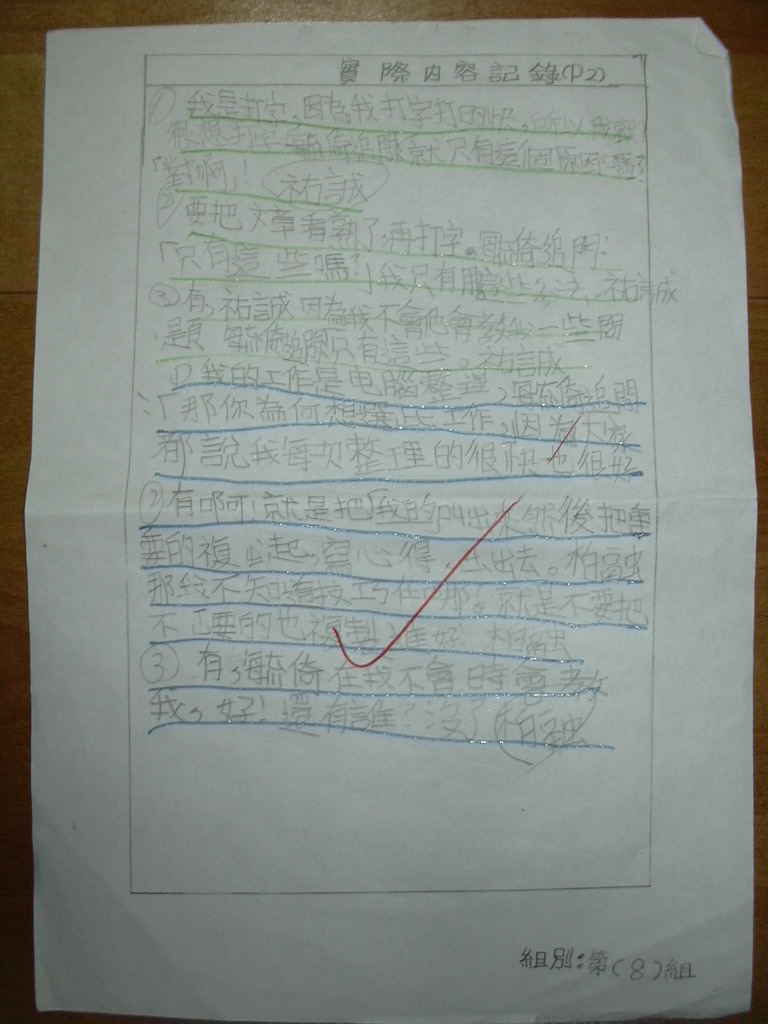 實際內容記錄(P2)
① 我是打字,因為我打字打的快,所以我就
很想打字 毓倚追問就只有這個原因嗎?
「對啊」! 祐誠
② 要把文章看熟了,再打字。毓倚追問:
「只有這些嗎?」我只有用這些方法,祐誠
③ 有,祐誠因為我不會他會教 一些問
題 毓倚追問只有這些,祐誠
① 我的工作是电腦整理,毓倚追問
:「那你為何想選此工作,因為大家
都說我每次整理的很快也很好
② 有啊!就是把「我的 叫出來然後把重
要的複 起,寫心得, 出去。柏融
那我不知道技巧在哪。就是不要把
不 要的也複製 好 柏融
③ 有,毓倚在我不會時會教
我,好!還有誰?沒了 柏融
組別:第(8)組